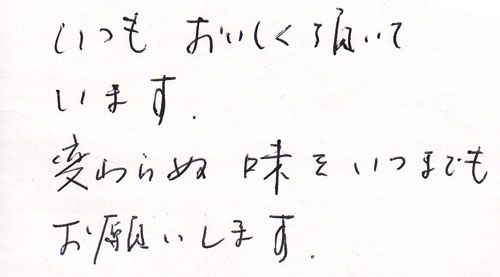 いつも おいしく頂いて
います.
変わらぬ 味を いつまでも
お願いします.